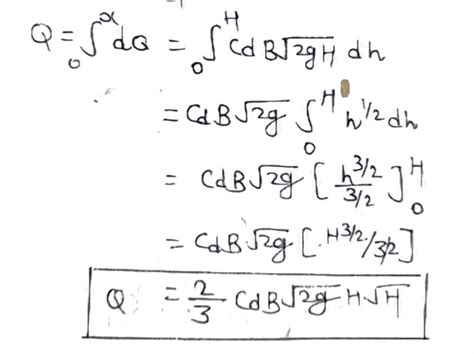 Q = ∫₀^α dQ = ∫₀^H Cd B√2gH dh
= Cd B√2g ∫₀^H h^1/2 dh
= Cd B√2g [h^3/2 / 3/2]₀^H
= Cd B√2g [H^3/2 / 3/2]
Q = 2/3 Cd B√2g H√H